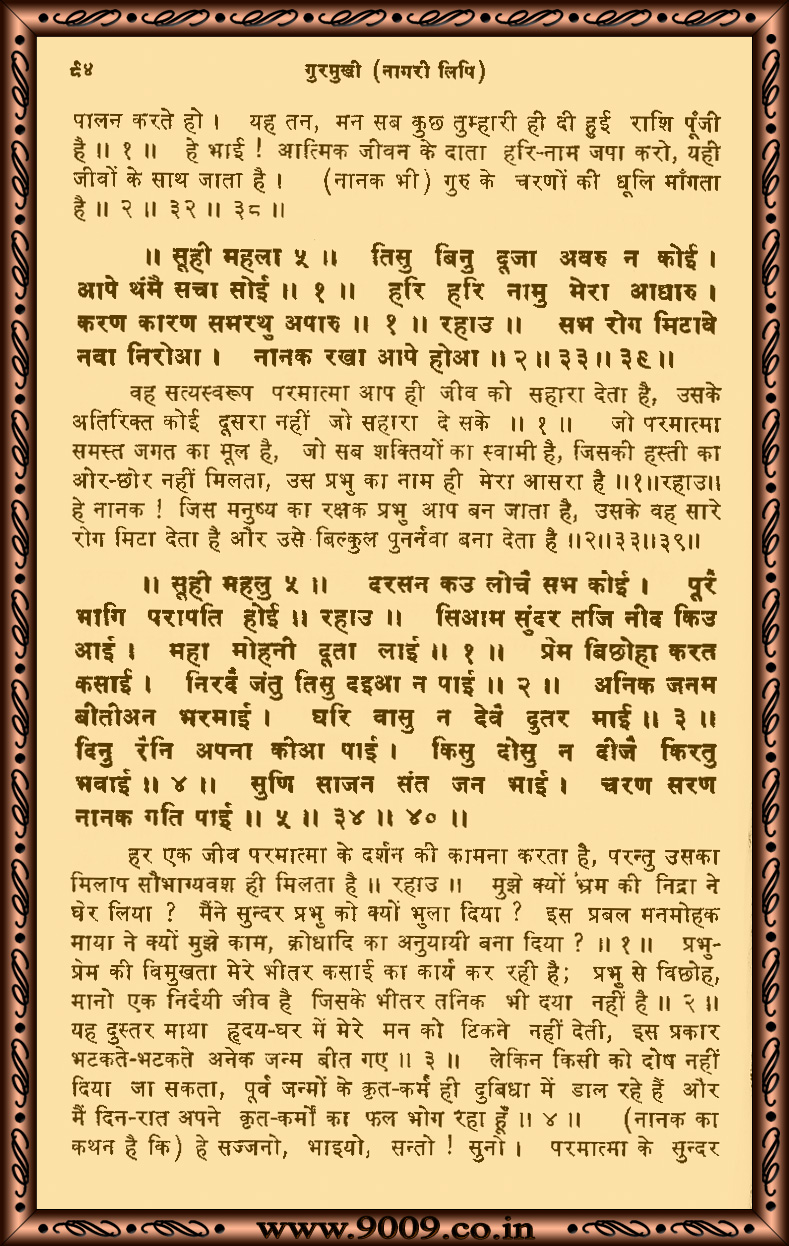 ९४ गुरमुखी (नागरी लिपि)
पालन करते हो । यह तन, मन सब कुछ तुम्हारी ही दी हुई राशि पूँजी
है ॥ १ ॥ हे भाई ! आत्मिक जीवन के दाता हरि-नाम जपा करो, यही
जीवों के साथ जाता है । (नानक भी) गुरु के चरणों की धूलि माँगता
है ॥ २ ॥ ३२ ॥ ३८ ॥
॥ सूही महला ५ ॥ तिसु बिनु दूजा अवरु न कोई ।
आपे थंमै सचा सोई ॥ १ ॥ हरि हरि नामु मेरा आधारु ।
करण कारण समरथु अपारु ॥ १ ॥ रहाउ ॥ सभ रोग मिटावे
नवा निरोआ । नानक रखा आपे होआ ॥ २ ॥ ३३ ॥ ३९ ॥
वह सत्यस्वरूप परमात्मा आप ही जीव को सहारा देता है, उसके
अतिरिक्त कोई दूसरा नहीं जो सहारा दे सके ॥ १ ॥ जो परमात्मा
समस्त जगत का मूल है, जो सब शक्तियों का स्वामी है, जिसकी हस्ती का
ओर-छोर नहीं मिलता, उस प्रभु का नाम ही मेरा आसरा है ॥१॥रहाउ॥
हे नानक ! जिस मनुष्य का रक्षक प्रभु आप बन जाता है, उसके वह सारे
रोग मिटा देता है और उसे बिल्कुल पुनर्नवा बना देता है ॥२॥३३॥३९॥
॥ सूही महलु ५ ॥ दरसन कउ लोचै सभ कोई । पूरै
भागि परापति होई ॥ रहाउ ॥ सिआम सुंदर तजि नीद किउ
आई । महा मोहनी दूता लाई ॥ १ ॥ प्रेम बिछोहा करत
कसाई । निरदै जंतु तिसु दइआ न पाई ॥ २ ॥ अनिक जनम
बीतीअन भरमाई । घरि वासु न देवै दुतर माई ॥ ३ ॥
दिनु रैनि अपना कीआ पाई । किसु दोसु न दीजै किरतु
भवाई ॥ ४ ॥ सुणि साजन संत जन भाई । चरण सरण
नानक गति पाई ॥ ५ ॥ ३४ ॥ ४० ॥
हर एक जीव परमात्मा के दर्शन की कामना करता है, परन्तु उसका
मिलाप सौभाग्यवश ही मिलता है ॥ रहाउ ॥ मुझे क्यों भ्रम की निद्रा ने
घेर लिया ? मैंने सुन्दर प्रभु को क्यों भुला दिया ? इस प्रबल मनमोहक
माया ने क्यों मुझे काम, क्रोधादि का अनुयायी बना दिया ? ॥ १ ॥ प्रभु-
प्रेम की विमुखता मेरे भीतर कसाई का कार्य कर रही है; प्रभु से विछोह,
मानो एक निर्दयी जीव है जिसके भीतर तनिक भी दया नहीं है ॥ २ ॥
यह दुस्तर माया हृदय-घर में मेरे मन को टिकने नहीं देती, इस प्रकार
भटकते-भटकते अनेक जन्म बीत गए ॥ ३ ॥ लेकिन किसी को दोष नहीं
दिया जा सकता, पूर्व जन्मों के कृत-कर्म ही दुबिधा में डाल रहे हैं और
मैं दिन-रात अपने कृत-कर्मों का फल भोग रहा हूँ ॥ ४ ॥ (नानक का
कथन है कि) हे सज्जनो, भाइयो, सन्तो ! सुनो । परमात्मा के सुन्दर
www.9009.co.in